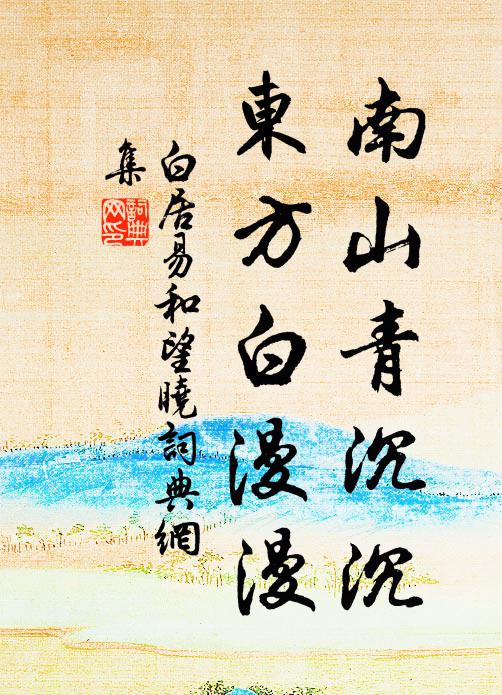 南山青沉沉
東方白漫漫
白居易和望曉詞典網
集
詞典
网印